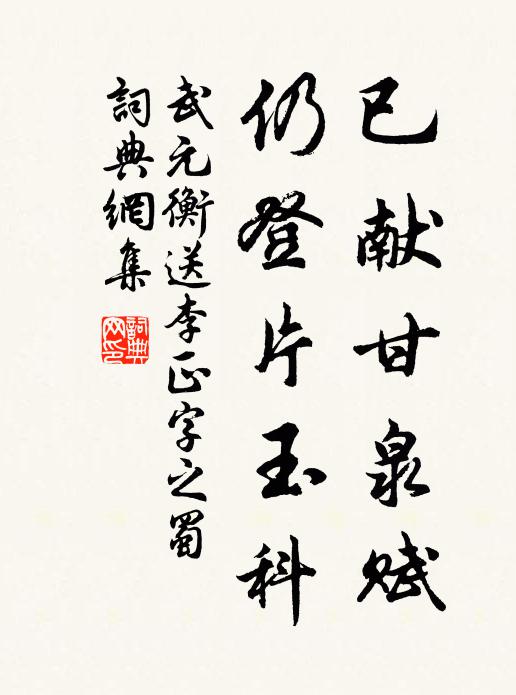 已献甘泉赋
仍登片玉科
武元衡送李正字之蜀
詞典網集
詞典网印